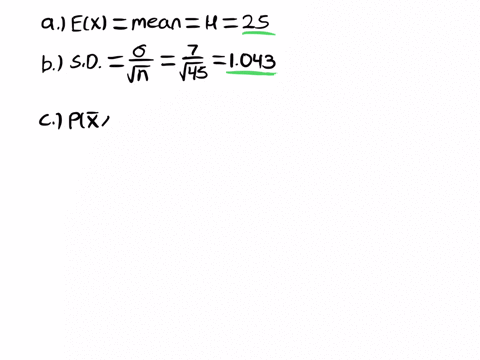 a.) E(x) = mean = M = 25
b.) S.D. = σ/√n = 7/√45 = 1.043
c.) P(x̄,